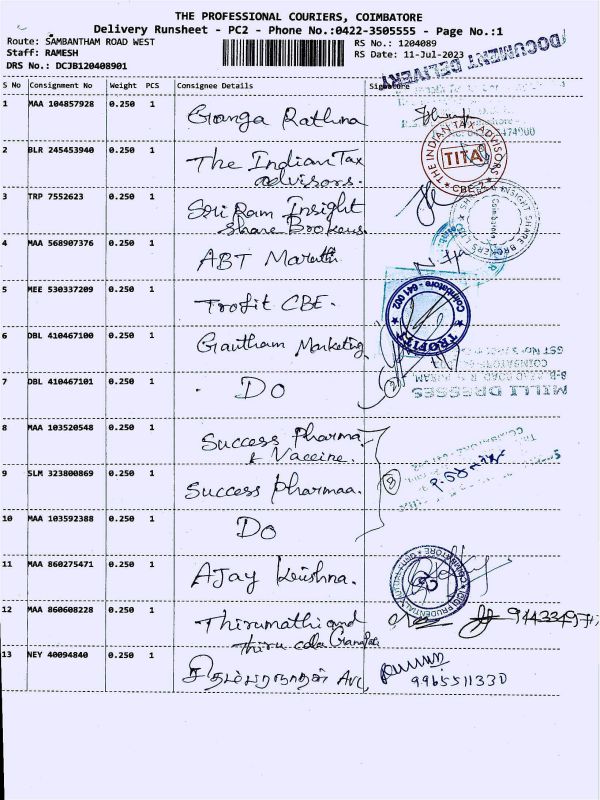 THE PROFESSIONAL COURIERS, COIMBATORE
Delivery Runsheet - PC2 - Phone No.:0422-3505555 - Page No.:1
Route: SAMBANTHAM ROAD WEST
Staff: RAMESH
DRS No.: DCJB120408901
RS No.: 1204089
RS Date: 11-Jul-2023
DOCUMENT DELIVERY
S No Consignment No Weight PCS Consignee Details Signature
1 MAA 104857928 0.250 1 Ganga Rathna
474900
2 BLR 245453940 0.250 1 The Indian Tax
advisors.
THE INDIAN TAX ADVISORS
TITA
CBE-2
3 TRP 7552623 0.250 1 Sri Ram Insight
Share Brokers.
INSIGHT SHARE BROKERS LTD
Coimbatore
4 MAA 568907376 0.250 1 ABT Maruthi
5 MEE 530337209 0.250 1 Trofit CBE.
Coimbatore - 641 002
TROFITT
6 DBL 410467100 0.250 1 Gautham Marketing
GST No:
7 DBL 410467101 0.250 1 Do
2
MILLI DRESSES
8 MAA 103520548 0.250 1 Success Pharma
& Vaccine.
9 SLM 323800869 0.250 1 Success Pharmaa.
3
10 MAA 103592388 0.250 1 Do
11 MAA 860275471 0.250 1 Ajay Krishna.
ICICI PRUDENTIAL
COIMBATORE
12 MAA 860608228 0.250 1 Thirumathi and
Thiru
13 NEY 40094840 0.250 1 சிதம்பரநாதன் Avl
9965511330